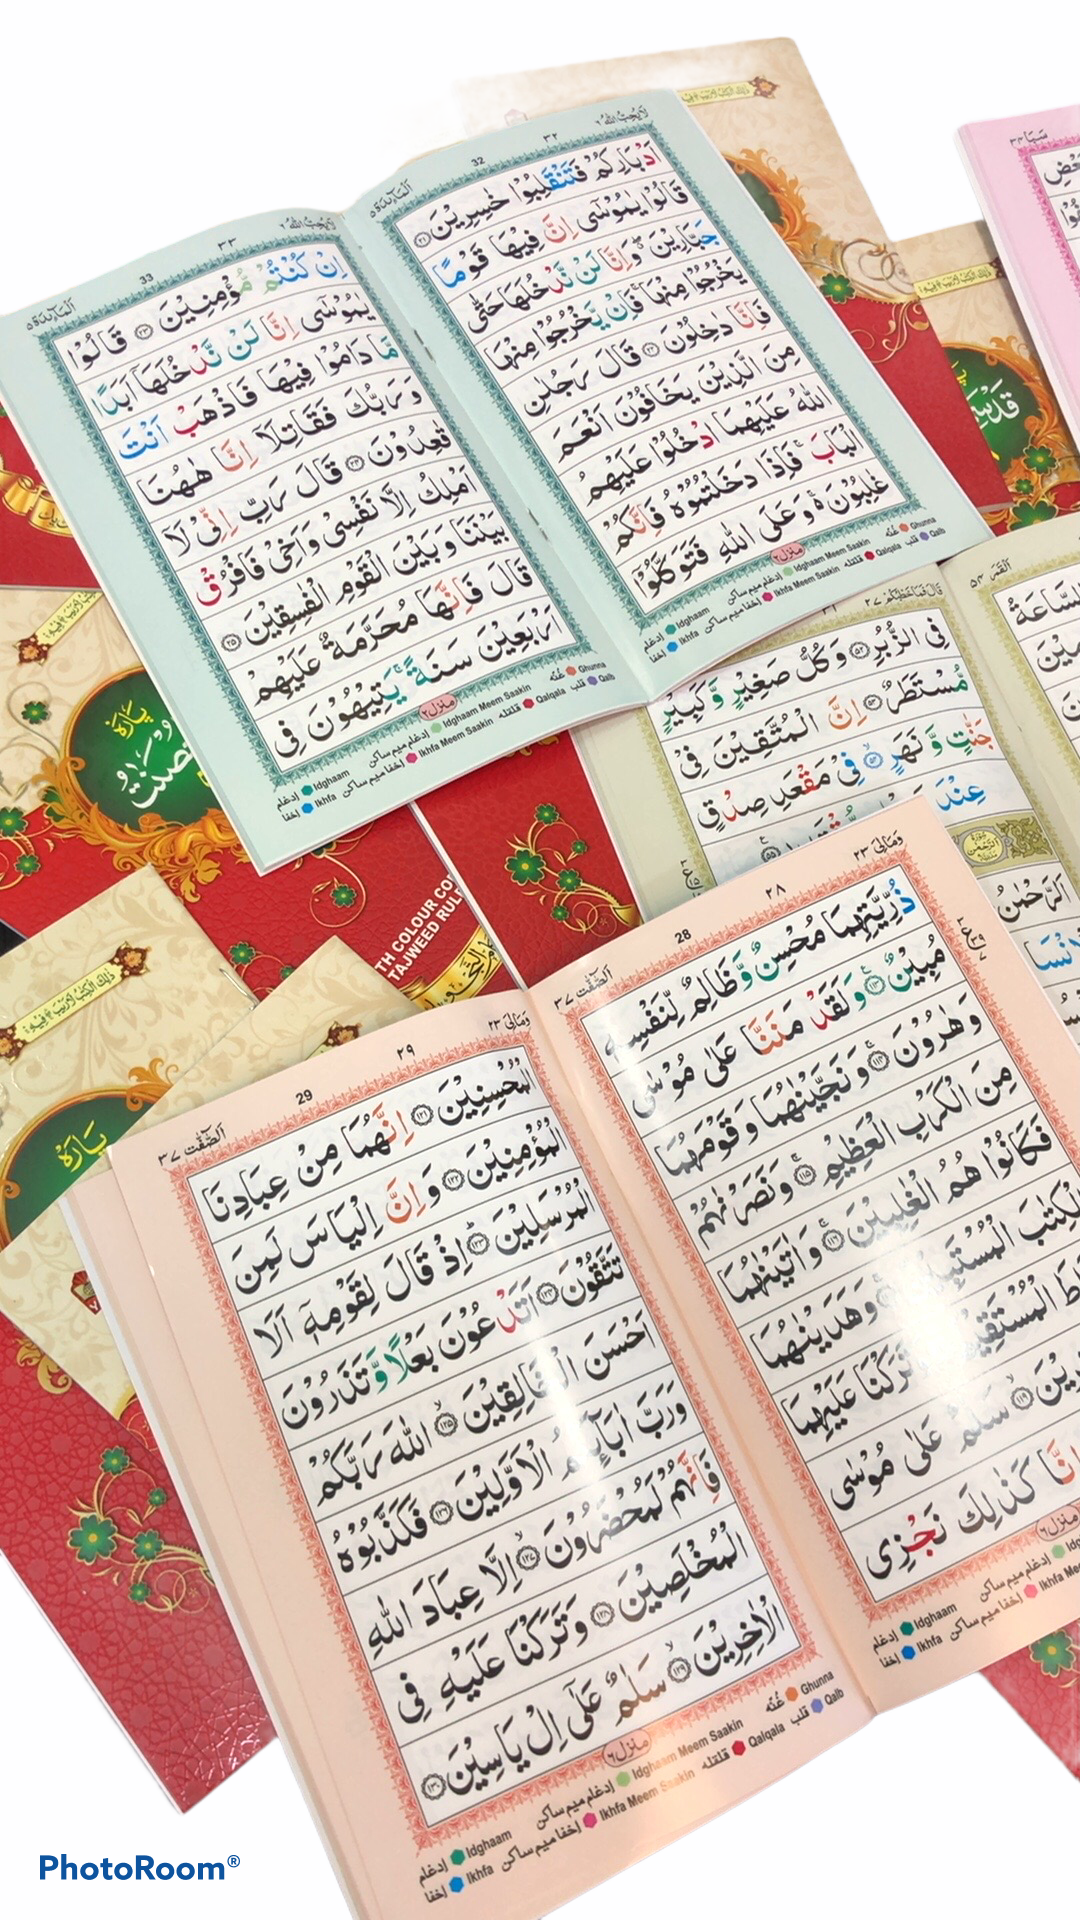 لا يحب الله ٦
٣٢
32
المآئدة ٥
اَدْبَارِكُمْ فَتَنْقَلِبُوْا خٰسِرِيْنَ ۝٢١
قَالُوْا يٰمُوْسٰٓى اِنَّ فِيْهَا قَوْمًا
جَبَّارِيْنَ ۖ وَاِنَّا لَنْ نَّدْخُلَهَا حَتّٰى
يَخْرُجُوْا مِنْهَا ۚ فَاِنْ يَّخْرُجُوْا مِنْهَا
فَاِنَّا دٰخِلُوْنَ ۝٢٢ قَالَ رَجُلٰنِ
مِنَ الَّذِيْنَ يَخَافُوْنَ اَنْعَمَ
اللّٰهُ عَلَيْهِمَا ادْخُلُوْا عَلَيْهِمُ
الْبَابَ ۚ فَاِذَا دَخَلْتُمُوْهُ فَاِنَّكُمْ
غٰلِبُوْنَ ۚ۬ وَعَلَى اللّٰهِ فَتَوَكَّلُوْٓا
منزل ٢
Idghaam إدغام
Ikhfa إخفا
Idghaam Meem Saakin إدغام ميم ساكن
Ikhfa Meem Saakin إخفا ميم ساكن
Ghunna غُنّه
Qalqala قلقله
Qalb قلب
لا يحب الله ٦
٣٣
33
المآئدة ٥
اِنْ كُنْتُمْ مُّؤْمِنِيْنَ ۝٢٣ قَالُوْا
يٰمُوْسٰٓى اِنَّا لَنْ نَّدْخُلَهَآ اَبَدًا
مَّا دَامُوْا فِيْهَا فَاذْهَبْ اَنْتَ
وَرَبُّكَ فَقَاتِلَآ اِنَّا هٰهُنَا
قٰعِدُوْنَ ۝٢٤ قَالَ رَبِّ اِنِّيْ لَآ
اَمْلِكُ اِلَّا نَفْسِيْ وَاَخِيْ فَافْرُقْ
بَيْنَنَا وَبَيْنَ الْقَوْمِ الْفٰسِقِيْنَ ۝٢٥
قَالَ فَاِنَّهَا مُحَرَّمَةٌ عَلَيْهِمْ
اَرْبَعِيْنَ سَنَةً ۚ يَتِيْهُوْنَ فِى
منزل ٢
Idghaam إدغام
Ikhfa إخفا
Idghaam Meem Saakin إدغام ميم ساكن
Ikhfa Meem Saakin إخفا ميم ساكن
Ghunna غُنّه
Qalqala قلقله
Qalb قلب
قال فما خطبكم ٢٧
فِى الزُّبُرِ ۝٥٢ وَكُلُّ صَغِيْرٍ وَّكَبِيْرٍ
مُّسْتَطَرٌ ۝٥٣ اِنَّ الْمُتَّقِيْنَ فِيْ
جَنّٰتٍ وَّنَهَرٍ ۝٥٤ فِيْ مَقْعَدِ صِدْقٍ
عِنْدَ
القمر ٥٤
سبا ٣٤
ذٰلِكَ الْكِتٰبُ لَا رَيْبَ فِيْهِ
پاره
TH COLOUR CO
TAJWEED RUL
ومالى ٢٣
٢٨
28
الصّٰفّٰت ٣٧
ذُرِّيَّتِهِمَا مُحْسِنٌ وَّظَالِمٌ لِّنَفْسِهٖ
مُبِيْنٌ ۝١١٣ وَلَقَدْ مَنَنَّا عَلٰى مُوْسٰى
وَهٰرُوْنَ ۝١١٤ وَنَجَّيْنٰهُمَا وَقَوْمَهُمَا
مِنَ الْكَرْبِ الْعَظِيْمِ ۝١١٥ وَنَصَرْنٰهُمْ
فَكَانُوْا هُمُ الْغٰلِبِيْنَ ۝١١٦ وَاٰتَيْنٰهُمَا
الْكِتٰبَ الْمُسْتَبِيْنَ وَهَدَيْنٰهُمَا
الْمُسْتَقِيْمَ وَتَرَكْنَا عَلَيْهِمَا
۝١١٩ سَلٰمٌ عَلٰى مُوْسٰى
اِنَّا كَذٰلِكَ نَجْزِى
منزل ٦
Idghaam إدغام
Ikhfa إخفا
إدغام ميم ساكن
إخفا ميم ساكن
ومالى ٢٣
٢٩
29
الصّٰفّٰت ٣٧
الْمُحْسِنِيْنَ ۝١٢١ اِنَّهُمَا مِنْ عِبَادِنَا
الْمُؤْمِنِيْنَ ۝١٢٢ وَاِنَّ اِلْيَاسَ لَمِنَ
الْمُرْسَلِيْنَ ۝١٢٣ اِذْ قَالَ لِقَوْمِهٖٓ اَلَا
تَتَّقُوْنَ ۝١٢٤ اَتَدْعُوْنَ بَعْلًا وَّتَذَرُوْنَ
اَحْسَنَ الْخَالِقِيْنَ ۝١٢٥ اللّٰهَ رَبَّكُمْ
وَرَبَّ اٰبَآئِكُمُ الْاَوَّلِيْنَ ۝١٢٦ فَكَذَّبُوْهُ
فَاِنَّهُمْ لَمُحْضَرُوْنَ ۝١٢٧ اِلَّا عِبَادَ اللّٰهِ
الْمُخْلَصِيْنَ ۝١٢٨ وَتَرَكْنَا عَلَيْهِ فِى
الْاٰخِرِيْنَ ۝١٢٩ سَلٰمٌ عَلٰٓى اِلْ يَاسِيْنَ ۝١٣٠
منزل ٦
Idghaam إدغام
Ikhfa إخفا
Idghaam Meem Saakin إدغام ميم ساكن
Ikhfa Meem Saakin إخفا ميم ساكن
Ghunna غُنّه
Qalqala قلقله
Qalb قلب
PhotoRoom®